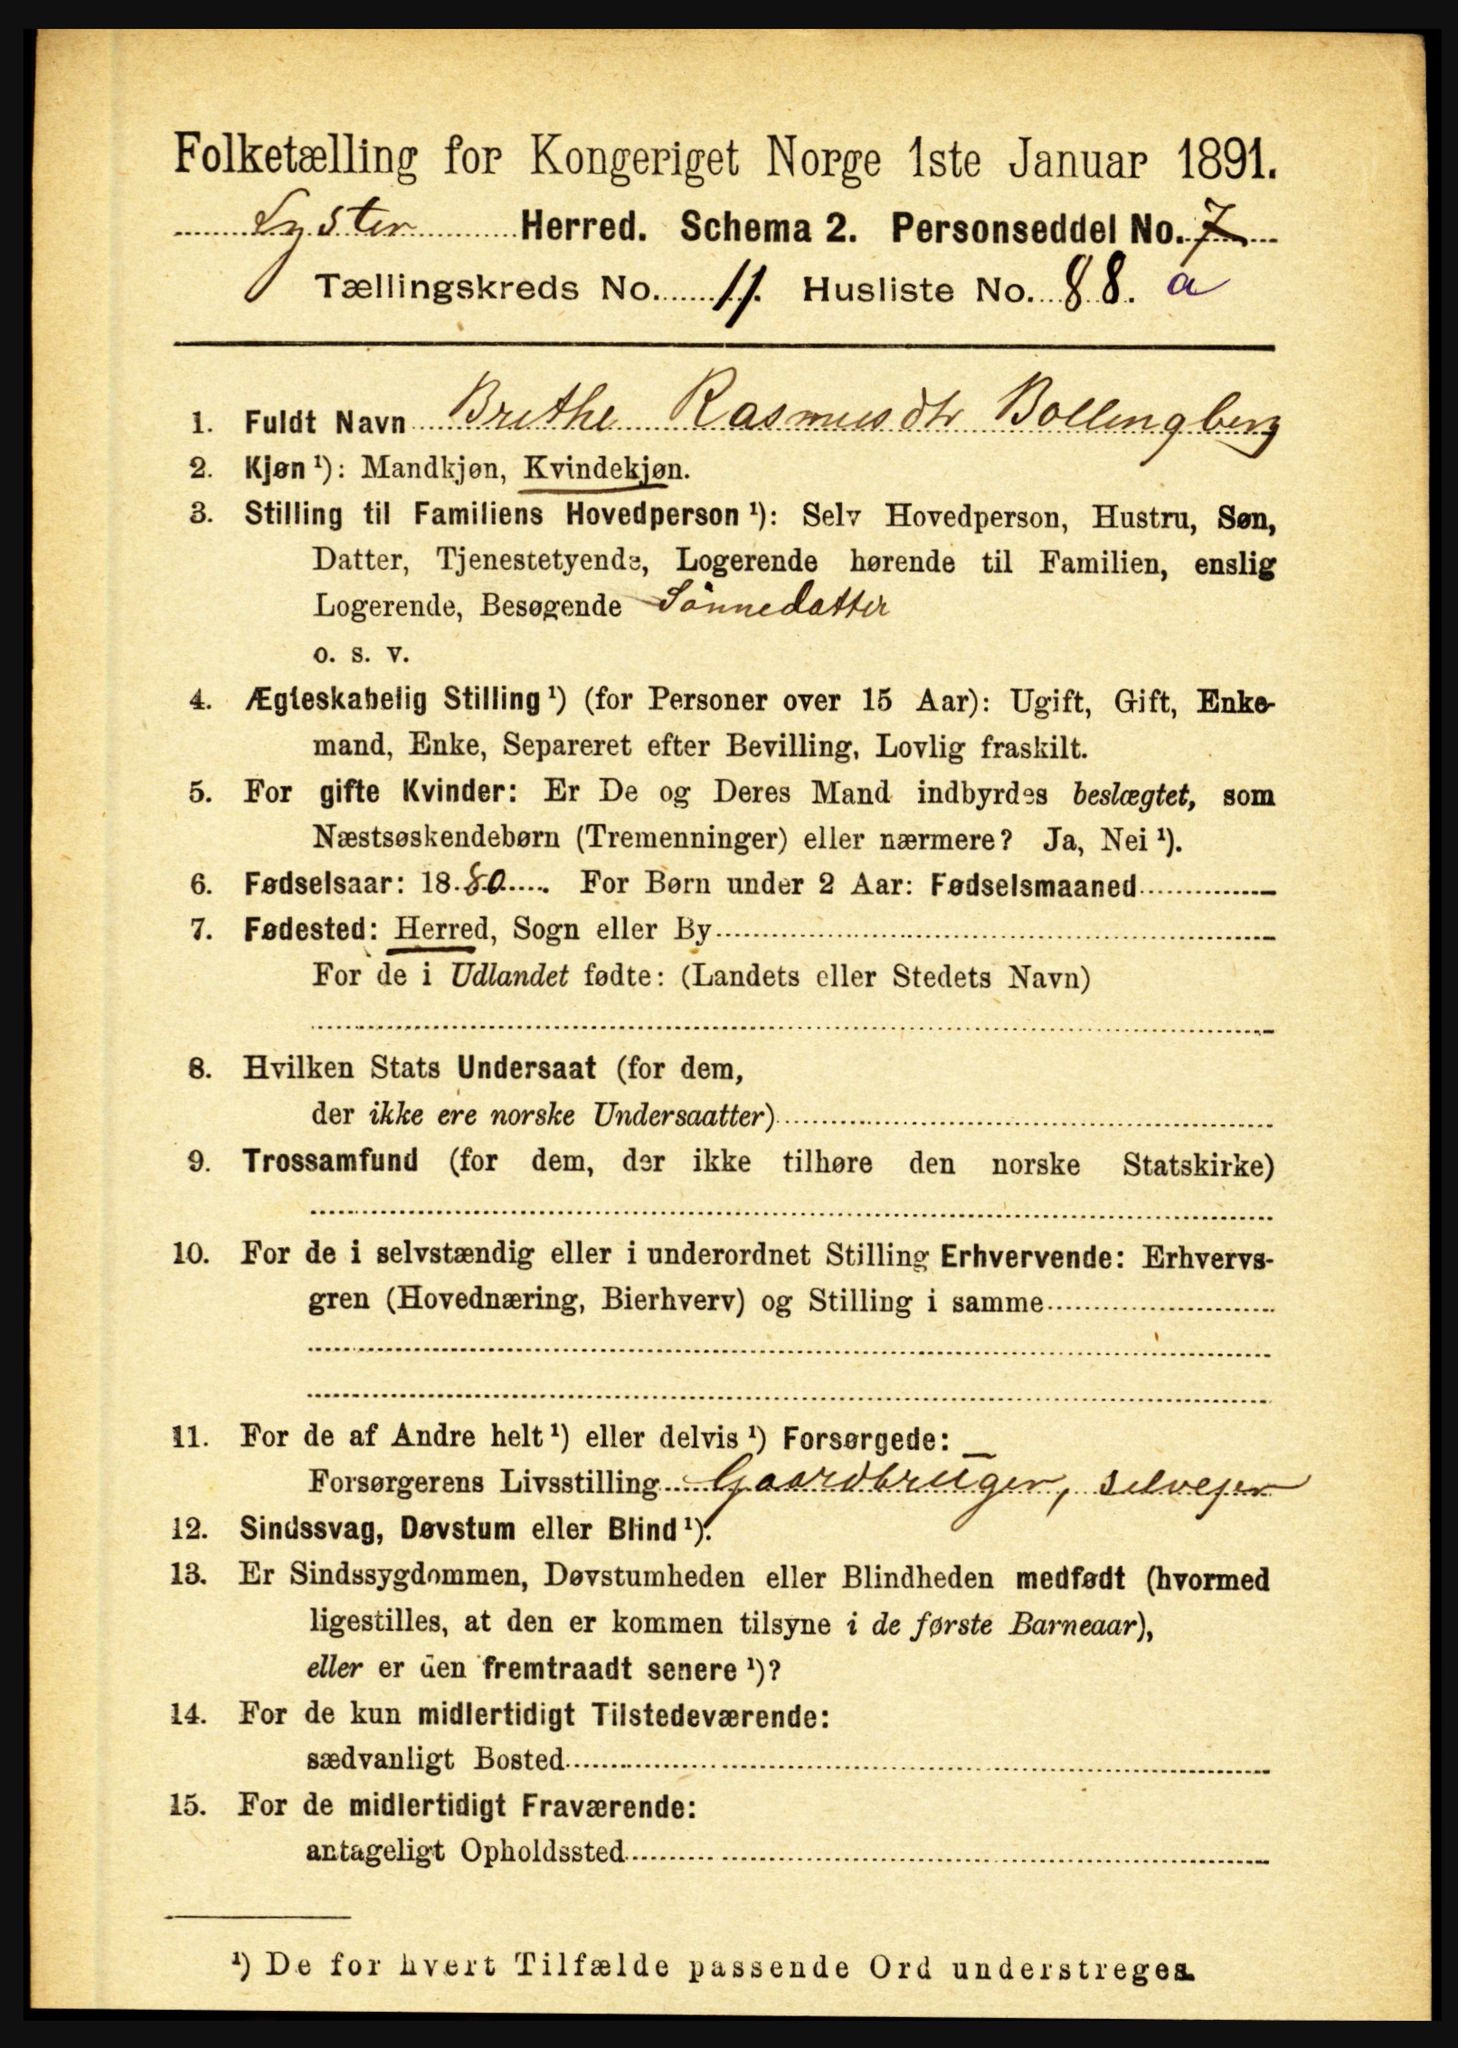 Folketælling for Kongeriget Norge 1ste Januar 1891.
Lyster Herred. Schema 2. Personseddel No. 7
Tællingskreds No. 11. Husliste No. 88. a
1. Fuldt Navn Brithe Rasmusdtr Bollingberg
2. Kjøn ¹): Mandkjøn, Kvindekjøn.
3. Stilling til Familiens Hovedperson ¹): Selv Hovedperson, Hustru, Søn,
Datter, Tjenestetyende, Logerende hørende til Familien, enslig
Logerende, Besøgende Sönnedatter
o. s. v.
4. Ægteskabelig Stilling ¹) (for Personer over 15 Aar): Ugift, Gift, Enke-
mand, Enke, Separeret efter Bevilling, Lovlig fraskilt.
5. For gifte Kvinder: Er De og Deres Mand indbyrdes beslægtet, som
Næstsøskendebørn (Tremenninger) eller nærmere? Ja, Nei ¹).
6. Fødselsaar: 1880. For Børn under 2 Aar: Fødselsmaaned
7. Fødested: Herred, Sogn eller By
For de i Udlandet fødte: (Landets eller Stedets Navn)
8. Hvilken Stats Undersaat (for dem,
der ikke ere norske Undersaatter)
9. Trossamfund (for dem, der ikke tilhøre den norske Statskirke)
10. For de i selvstændig eller i underordnet Stilling Erhvervende: Erhvervs-
gren (Hovednæring, Bierhverv) og Stilling i samme
11. For de af Andre helt ¹) eller delvis ¹) Forsørgede:
Forsørgerens Livsstilling Gaardbruger, selvejer
12. Sindssvag, Døvstum eller Blind ¹).
13. Er Sindssygdommen, Døvstumheden eller Blindheden medfødt (hvormed
ligestilles, at den er kommen tilsyne i de første Barneaar),
eller er den fremtraadt senere ¹)?
14. For de kun midlertidigt Tilstedeværende:
sædvanligt Bosted
15. For de midlertidigt Fraværende:
antageligt Opholdssted
¹) De for hvert Tilfælde passende Ord understreges.